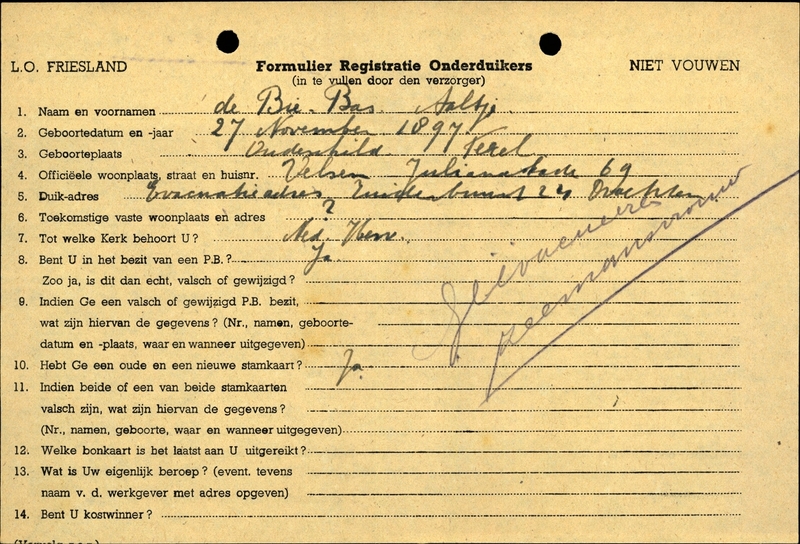 L.O. FRIESLAND
Formulier Registratie Onderduikers
(in te vullen door den verzorger)
NIET VOUWEN
1. Naam en voornamen de Bie-Bas Aaltje
2. Geboortedatum en -jaar 27 November 1897
3. Geboorteplaats Oudeschild Texel
4. Officiëele woonplaats, straat en huisnr. Velsen Julianakade 69
5. Duik-adres Evacuatieadres Zuiderbuurt 24 Drachten
6. Toekomstige vaste woonplaats en adres ?
7. Tot welke Kerk behoort U? Ned. Herv.
8. Bent U in het bezit van een P.B.? Ja
Zoo ja, is dit dan echt, valsch of gewijzigd?
9. Indien Ge een valsch of gewijzigd P.B. bezit,
wat zijn hiervan de gegevens? (Nr., namen, geboorte-
datum en -plaats, waar en wanneer uitgegeven)
Geëvacueerde
zeemansvrouw
10. Hebt Ge een oude en een nieuwe stamkaart? Ja
11. Indien beide of een van beide stamkaarten
valsch zijn, wat zijn hiervan de gegevens?
(Nr., namen, geboorte, waar en wanneer uitgegeven)
12. Welke bonkaart is het laatst aan U uitgereikt?
13. Wat is Uw eigenlijk beroep? (event. tevens
naam v. d. werkgever met adres opgeven)
14. Bent U kostwinner?